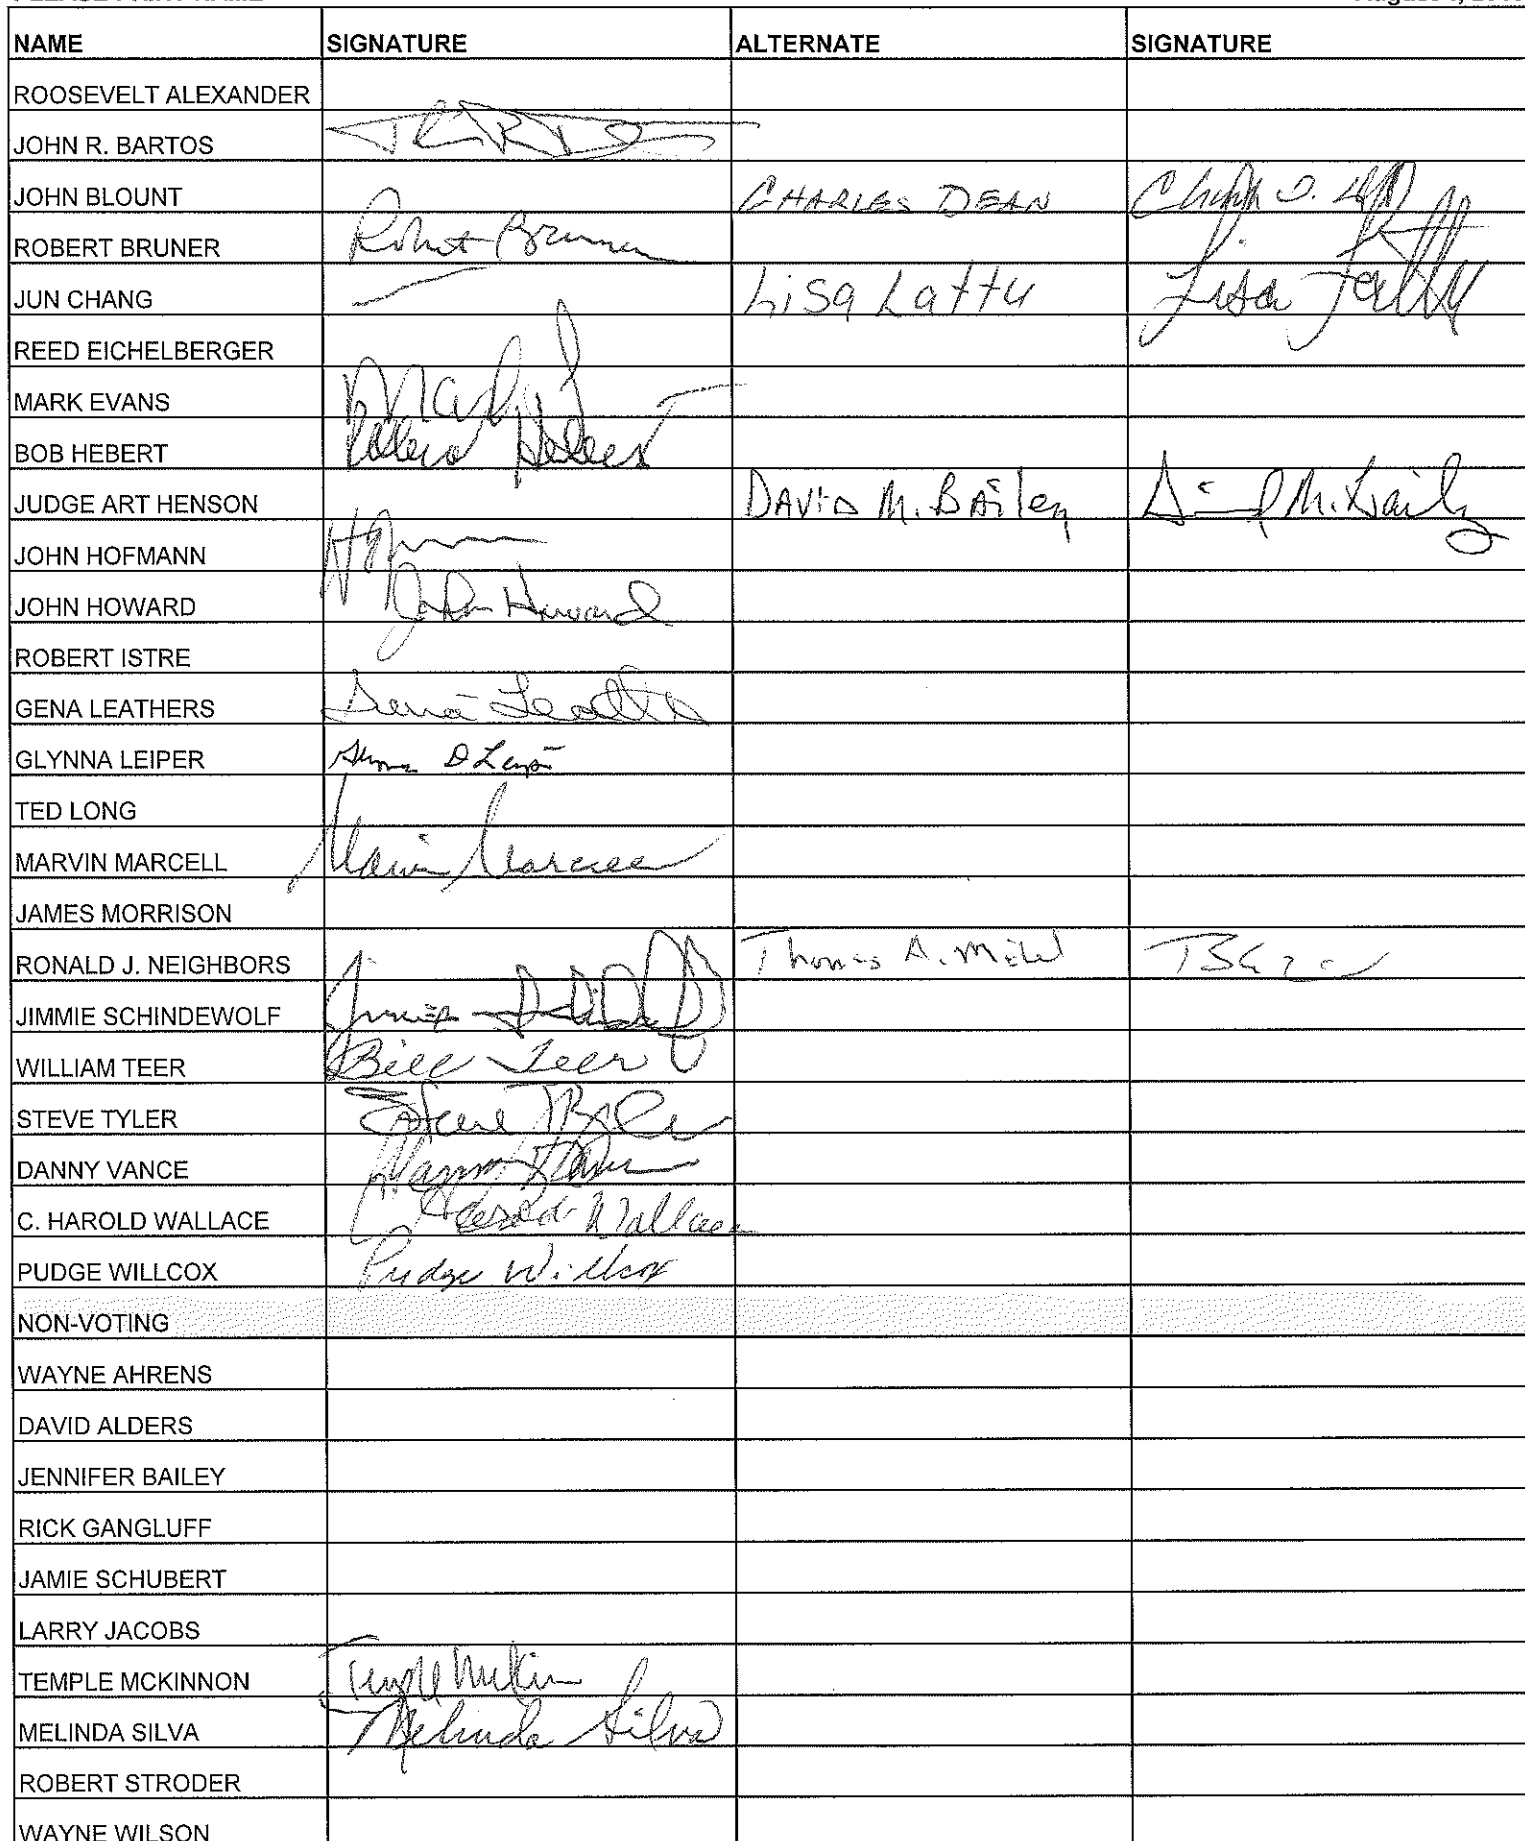 NAME SIGNATURE ALTERNATE SIGNATURE
ROOSEVELT ALEXANDER
JOHN R. BARTOS
JOHN BLOUNT CHARLES DEAN
ROBERT BRUNER Robert Bruner
JUN CHANG Lisa Lattu Lisa Lattu
REED EICHELBERGER
MARK EVANS Mark
BOB HEBERT Robert Hebert
JUDGE ART HENSON DAVID M. BAiley David M. Baily
JOHN HOFMANN
JOHN HOWARD John Howard
ROBERT ISTRE
GENA LEATHERS Gena Leathers
GLYNNA LEIPER
TED LONG
MARVIN MARCELL Marvin Marcell
JAMES MORRISON
RONALD J. NEIGHBORS Thomas A. Michel
JIMMIE SCHINDEWOLF Jimmie
WILLIAM TEER Bill Teer
STEVE TYLER Steve
DANNY VANCE
C. HAROLD WALLACE Harold Wallace
PUDGE WILLCOX Pudge Willcox
NON-VOTING
WAYNE AHRENS
DAVID ALDERS
JENNIFER BAILEY
RICK GANGLUFF
JAMIE SCHUBERT
LARRY JACOBS
TEMPLE MCKINNON Temple McKinnon
MELINDA SILVA Melinda Silva
ROBERT STRODER
WAYNE WILSON